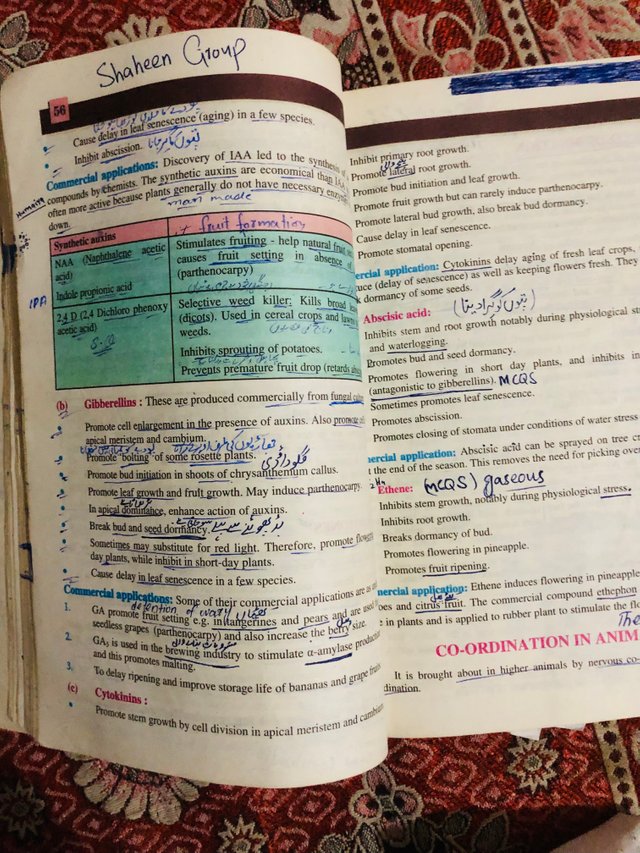 Shaheen Group
56
Cause delay in leaf senescence (aging) in a few species.
Inhibit abscission.
Commercial applications: Discovery of IAA led to the synthesis of
compounds by chemists. The synthetic auxins are economical than IAA
often more active because plants generally do not have necessary enzymes
down.
man made
Synthetic auxins
fruit formation
NAA (Naphthalene acetic acid)
Indole propionic acid
IPA
Stimulates fruiting - help natural fruit
causes fruit setting in absence of
(parthenocarpy)
2,4 D (2,4 Dichloro phenoxy acetic acid)
S.Q
Selective weed killer: Kills broad
(dicots). Used in cereal crops and lawns
weeds.
Inhibits sprouting of potatoes.
Prevents premature fruit drop (retards
(b) Gibberellins : These are produced commercially from fungal
Promote cell enlargement in the presence of auxins. Also promote
apical meristem and cambium.
Promote 'bolting' of some rosette plants.
Promote bud initiation in shoots of chrysanthemum callus.
Promote leaf growth and fruit growth. May induce parthenocarpy.
In apical dominance, enhance action of auxins.
Break bud and seed dormancy.
Sometimes may substitute for red light. Therefore, promote
day plants, while inhibit in short-day plants.
Cause delay in leaf senescence in a few species.
Commercial applications: Some of their commercial applications are as
1. GA promote fruit setting e.g. in tangerines and pears and are used
seedless grapes (parthenocarpy) and also increase the berry size.
2. GA₃ is used in the brewing industry to stimulate α-amylase
and this promotes malting.
3. To delay ripening and improve storage life of bananas and grape
(c) Cytokinins :
Promote stem growth by cell division in apical meristem and
Inhibit primary root growth.
Promote lateral root growth.
Promote bud initiation and leaf growth.
Promote fruit growth but can rarely induce parthenocarpy.
Promote lateral bud growth, also break bud dormancy.
Cause delay in leaf senescence.
Promote stomatal opening.
ercial application: Cytokinins delay aging of fresh leaf crops,
uce (delay of senescence) as well as keeping flowers fresh. They
dormancy of some seeds.
Abscisic acid:
Inhibits stem and root growth notably during physiological
and waterlogging.
Promotes bud and seed dormancy.
Promotes flowering in short day plants, and inhibits in
(antagonistic to gibberellins). MCQS
Sometimes promotes leaf senescence.
Promotes abscission.
Promotes closing of stomata under conditions of water
ercial application: Abscisic acid can be sprayed on tree
t the end of the season. This removes the need for picking over
Ethene: MCQS) gaseous
Inhibits stem growth, notably during physiological stress.
Inhibits root growth.
Breaks dormancy of bud.
Promotes flowering in pineapple.
Promotes fruit ripening.
mercial application: Ethene induces flowering in pineapple
oes and citrus fruit. The commercial compound ethephon
e in plants and is applied to rubber plant to stimulate the
The
CO-ORDINATION IN ANIM
It is brought about in higher animals by nervous co-
dination.